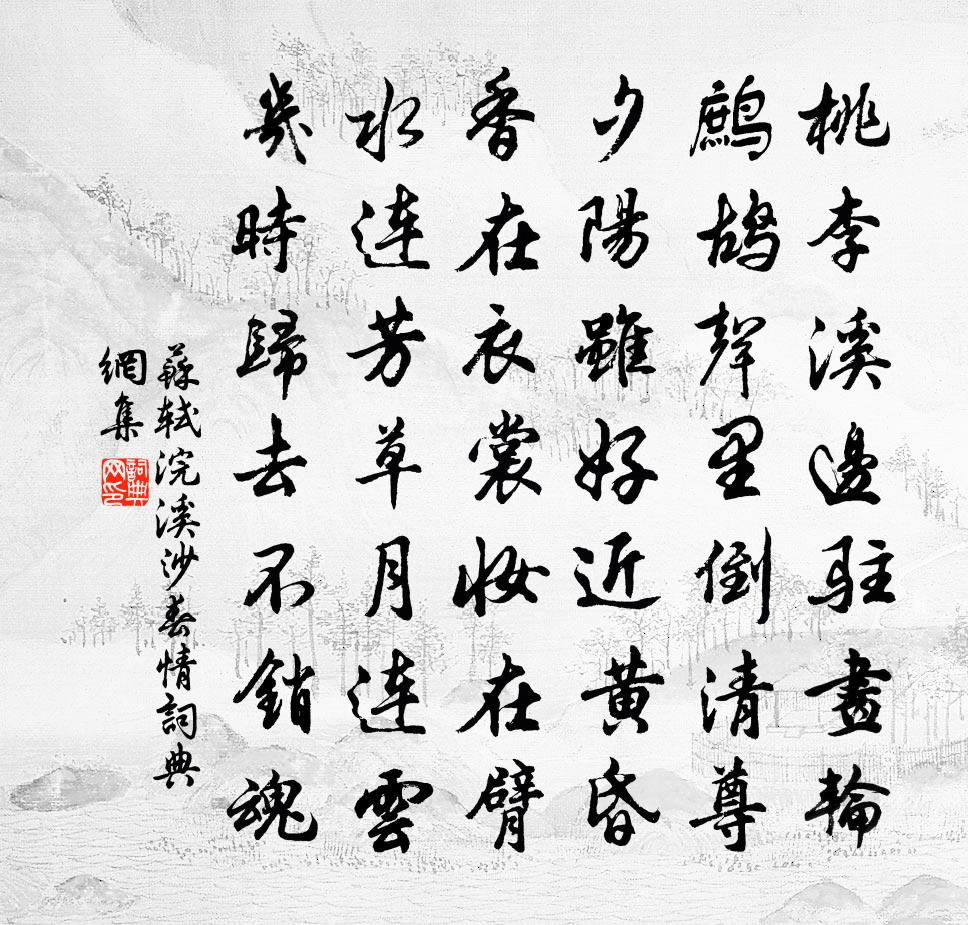 桃李溪邊駐畫輪
鷓鴣聲里倒清尊
夕陽雖好近黃昏
香在衣裳妝在臂
水連芳草月連雲
幾時歸去不銷魂
蘇軾浣溪沙春情詞典
網集
詞典
网印